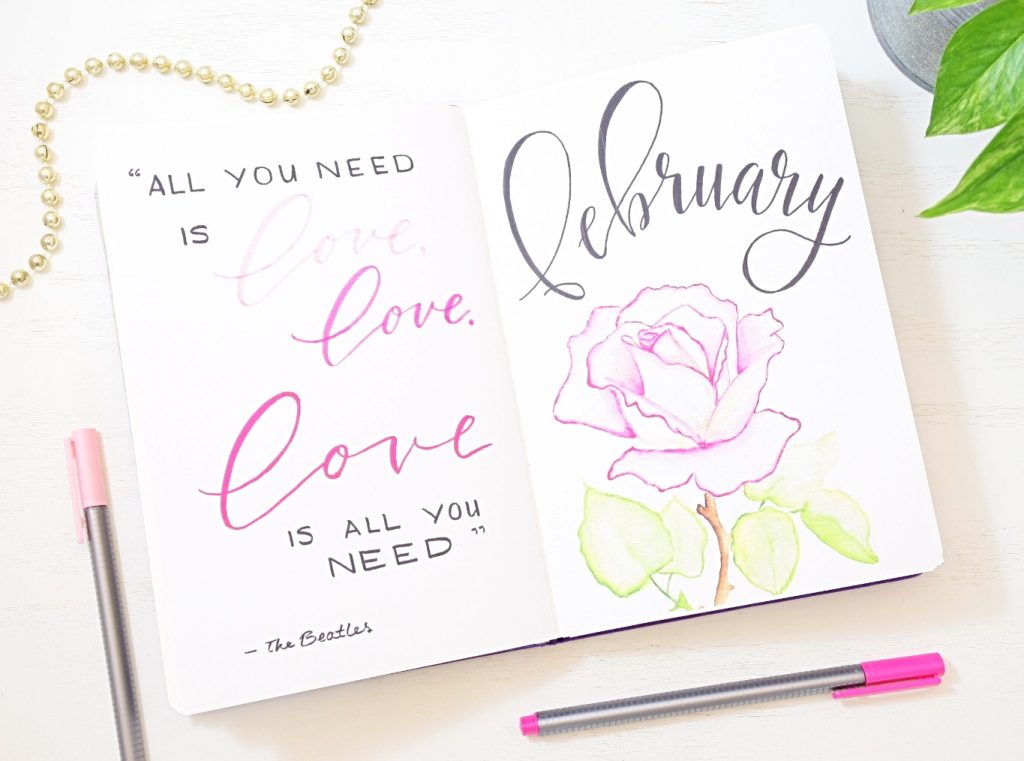 “ALL YOU NEED
IS love.
love.
love
IS ALL YOU
NEED”
- The Beatles
February